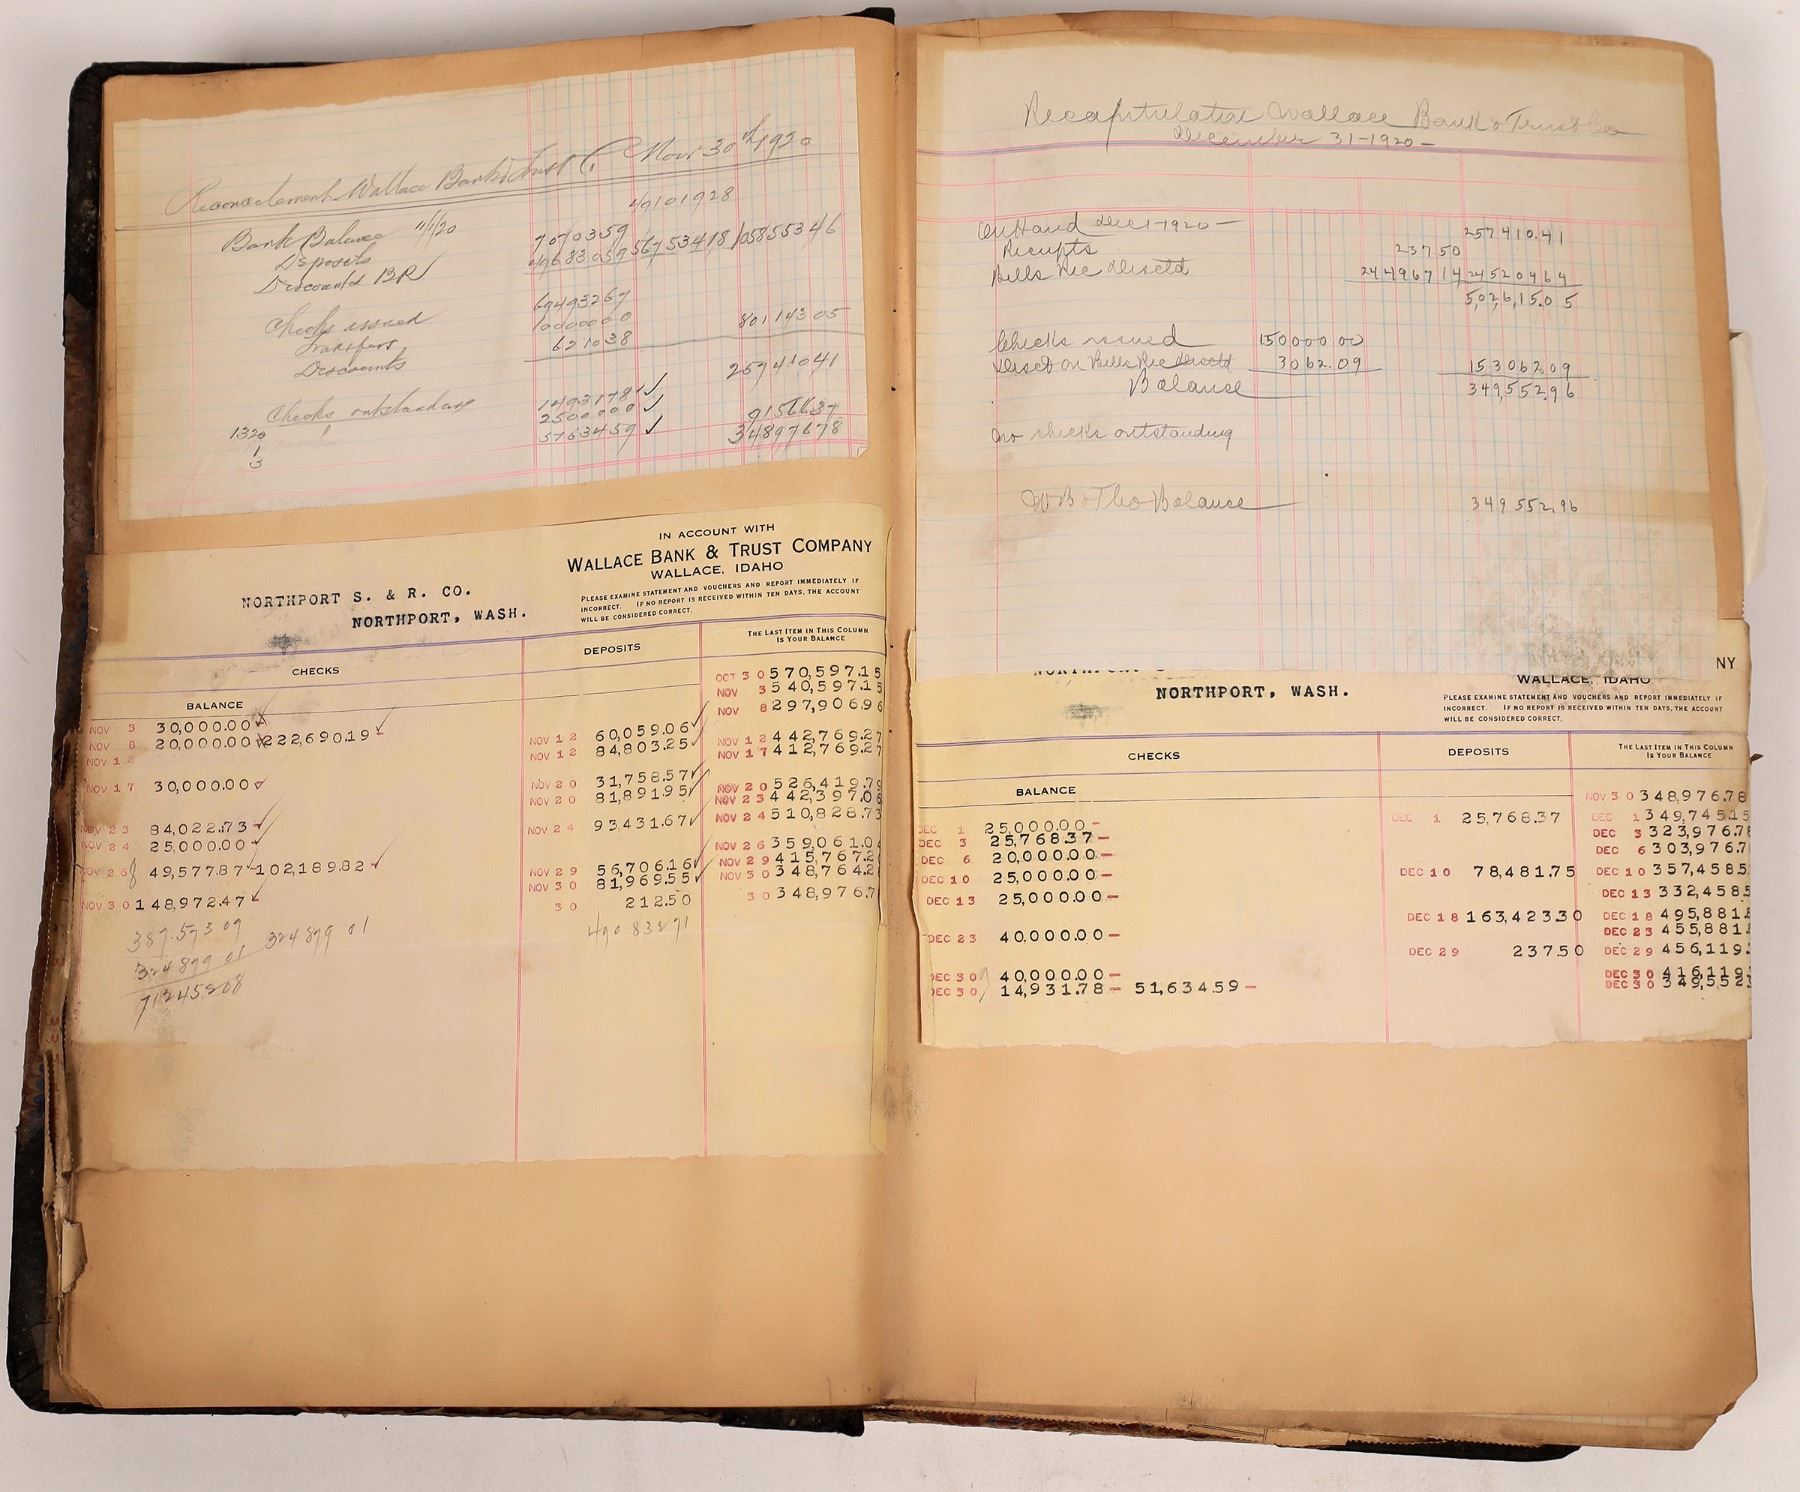 Reconcilement Wallace Bank & Trust Co Nov 30th 1920
49101928
Bank Balance 11/1/20
Deposits 7070359
Discount'd BR 49683059 56753418 105855346
Checks issued 69493267
Transfers 1000000
Discounts 621038 80114305
25741041
Checks outstanding
1320 1493178 ✓
1 2500000 ✓ 9156637
3 5163459 ✓ 34897678
IN ACCOUNT WITH
WALLACE BANK & TRUST COMPANY
WALLACE, IDAHO
NORTHPORT S. & R. CO.
NORTHPORT, WASH.
PLEASE EXAMINE STATEMENT AND VOUCHERS AND REPORT IMMEDIATELY IF
INCORRECT. IF NO REPORT IS RECEIVED WITHIN TEN DAYS, THE ACCOUNT
WILL BE CONSIDERED CORRECT.
CHECKS DEPOSITS THE LAST ITEM IN THIS COLUMN
IS YOUR BALANCE
BALANCE OCT 30 570,597.15
NOV 3 30,000.00 NOV 3 540,597.15
NOV 8 20,000.00 222,690.19 NOV 8 297,906.96
NOV 12 NOV 12 60,059.06
NOV 12 84,803.25 NOV 12 442,769.27
NOV 17 30,000.00 NOV 17 412,769.27
NOV 20 31,758.57
NOV 20 81,891.95 NOV 20 526,419.79
NOV 23 84,022.73 NOV 23 442,397.06
NOV 24 25,000.00 NOV 24 93,431.67 NOV 24 510,828.73
NOV 26 49,577.87 102,189.82 NOV 26 359,061.04
NOV 29 56,706.16 NOV 29 415,767.2
NOV 30 148,972.47 NOV 30 81,969.55 NOV 30 348,764.2
30 212.50 30 348,976.7
387.573 09 324899 01 490 832 71
324899 01
71245208
Recapitulation Wallace Bank & Trust Co
December 31-1920-
On Hand Dec 1-1920- 257410.41
Receipts 23750
Bills Rec Disctd 24496714 24520464
5,026,15.05
Checks issued 150000 00
Disct on Bills Rec Disctd 3062.09 153062 09
Balance 349,552.96
No checks outstanding
W B & T Co Balance 349 552.96
NY
NORTHPORT, WASH.
WALLACE, IDAHO
PLEASE EXAMINE STATEMENT AND VOUCHERS AND REPORT IMMEDIATELY IF
INCORRECT. IF NO REPORT IS RECEIVED WITHIN TEN DAYS, THE ACCOUNT
WILL BE CONSIDERED CORRECT.
CHECKS DEPOSITS THE LAST ITEM IN THIS COLUMN
IS YOUR BALANCE
BALANCE NOV 30 348,976.78
DEC 1 25,000.00 DEC 1 25,768.37 DEC 1 349,745.15
DEC 3 25,768.37 DEC 3 323,976.7
DEC 6 20,000.00 DEC 6 303,976.7
DEC 10 25,000.00 DEC 10 78,481.75 DEC 10 357,458.5
DEC 13 25,000.00 DEC 13 332,458.5
DEC 18 163,423.30 DEC 18 495,881.8
DEC 23 40,000.00 DEC 23 455,881.
DEC 29 237.50 DEC 29 456,119.
DEC 30 40,000.00 DEC 30 416,119.
DEC 30 14,931.78 51,634.59 DEC 30 349,552